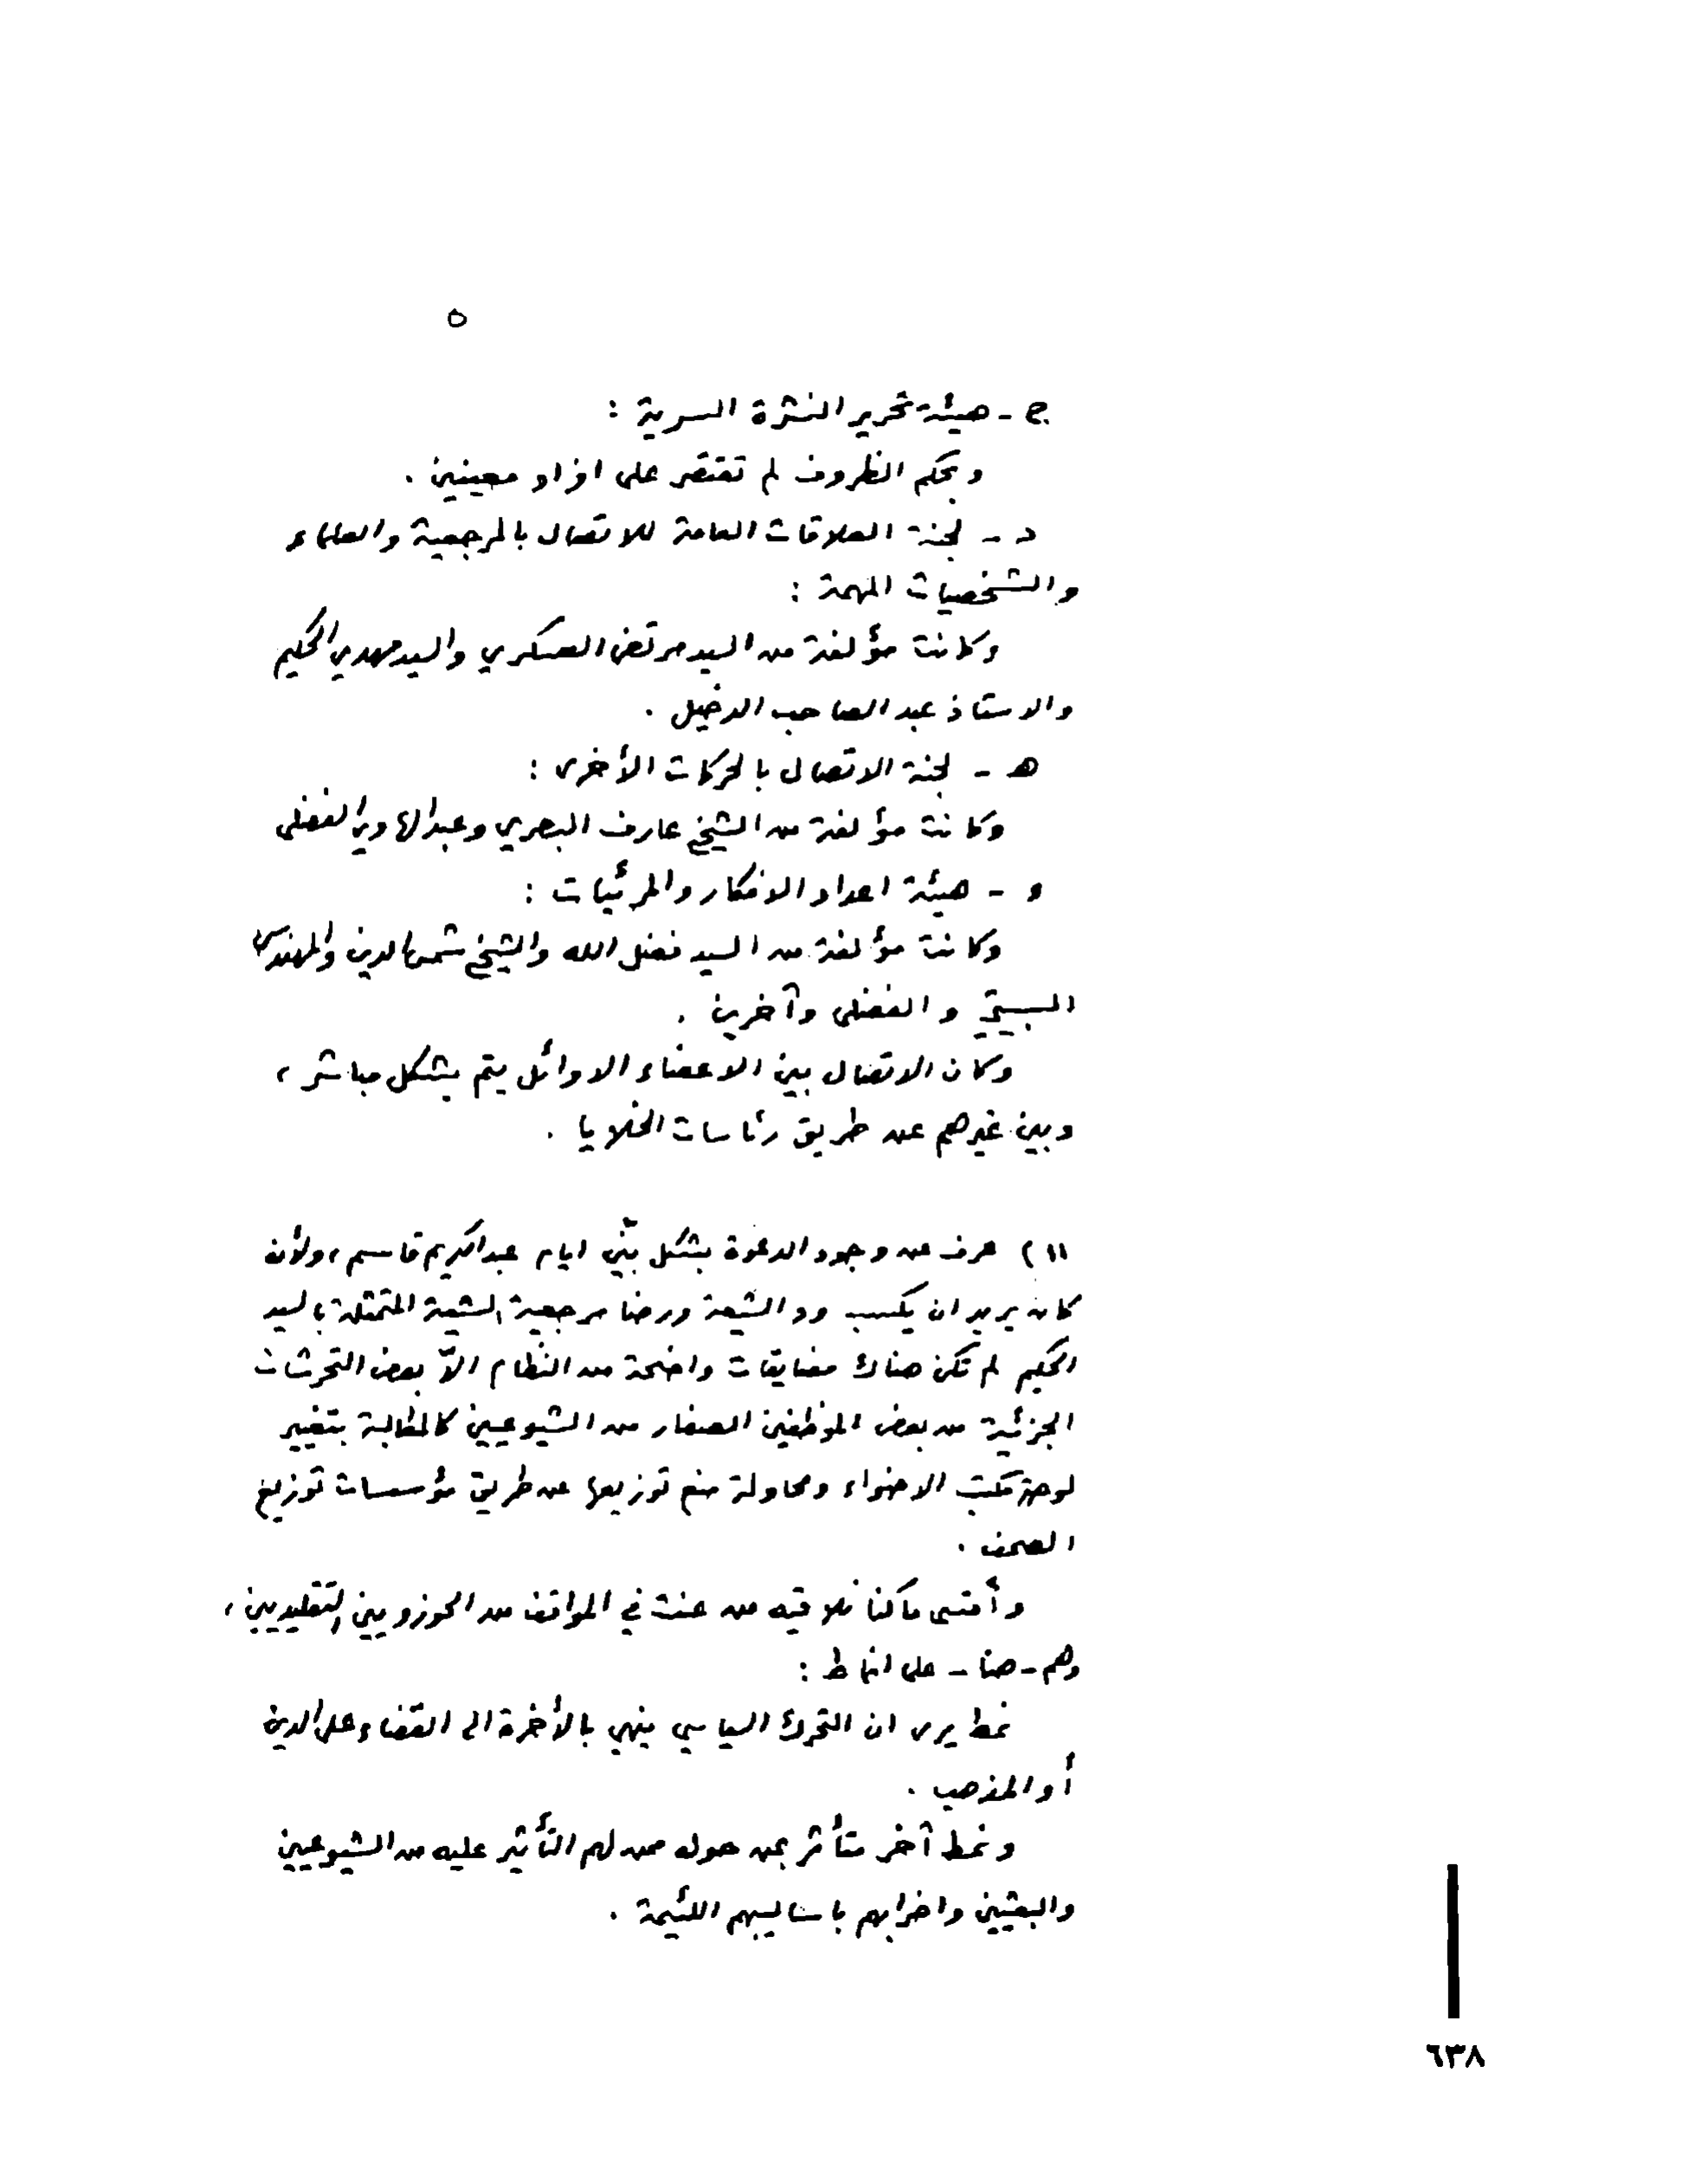 ٥
ج - هيئة تحرير النشرة السرية :
وبحكم الظروف لم تقتصر على افراد معينين .
د - لجنة العلاقات العامة للاتصال بالمرجعية والعلماء
والشخصيات المهمة :
وكانت مؤلفة من السيد مرتضى العسكري والسيد مهدي الحكيم
والاستاذ عبد الصاحب الدخيل .
هـ - لجنة الاتصال بالحركات الأخرى :
وكانت مؤلفة من الشيخ عارف البصري وعبد الهادي الفضلي
و - هيئة اعداد الافكار والمرئيات :
وكانت مؤلفة من السيد فضل الله والشيخ شمس الدين والمهندس
السبيتي والفضلي وآخرين .
وكان الاتصال بين الاعضاء الاوائل يتم بشكل مباشر ،
وبين غيرهم عن طريق رئاسات الخلايا .
١١) عرف عن وجود الدعوة بشكل بيّن ايام عبد الكريم قاسم ، ولأنه
كان يريد ان يكسب ود الشيعة ورضا مرجعية الشيعة المتمثلة بالسيد
الحكيم لم تكن هناك مضايقات واضحة من النظام الاّ بعض التحرشات
الجزئية من بعض الموظفين الصغار من الشيوعيين كالمطالبة بتغيير
لوحة مكتب الاضواء ومحاولة منع توزيعها عن طريق مؤسسات توزيع
الصحف .
وأقسى ما كنا نلاقيه من عنت في المواقف من الحوزويين التقليديين ،
وهم - هنا - على انماط :
نمط يرى ان التحرك السياسي ينهي بالأخرة الى القضاء على الدين
أو المذهب .
ونمط آخر متأثر بمن حوله ممن لهم التأثير عليه من الشيوعيين
والبعثيين واضرابهم باساليبهم اللئيمة .
٦٣٨